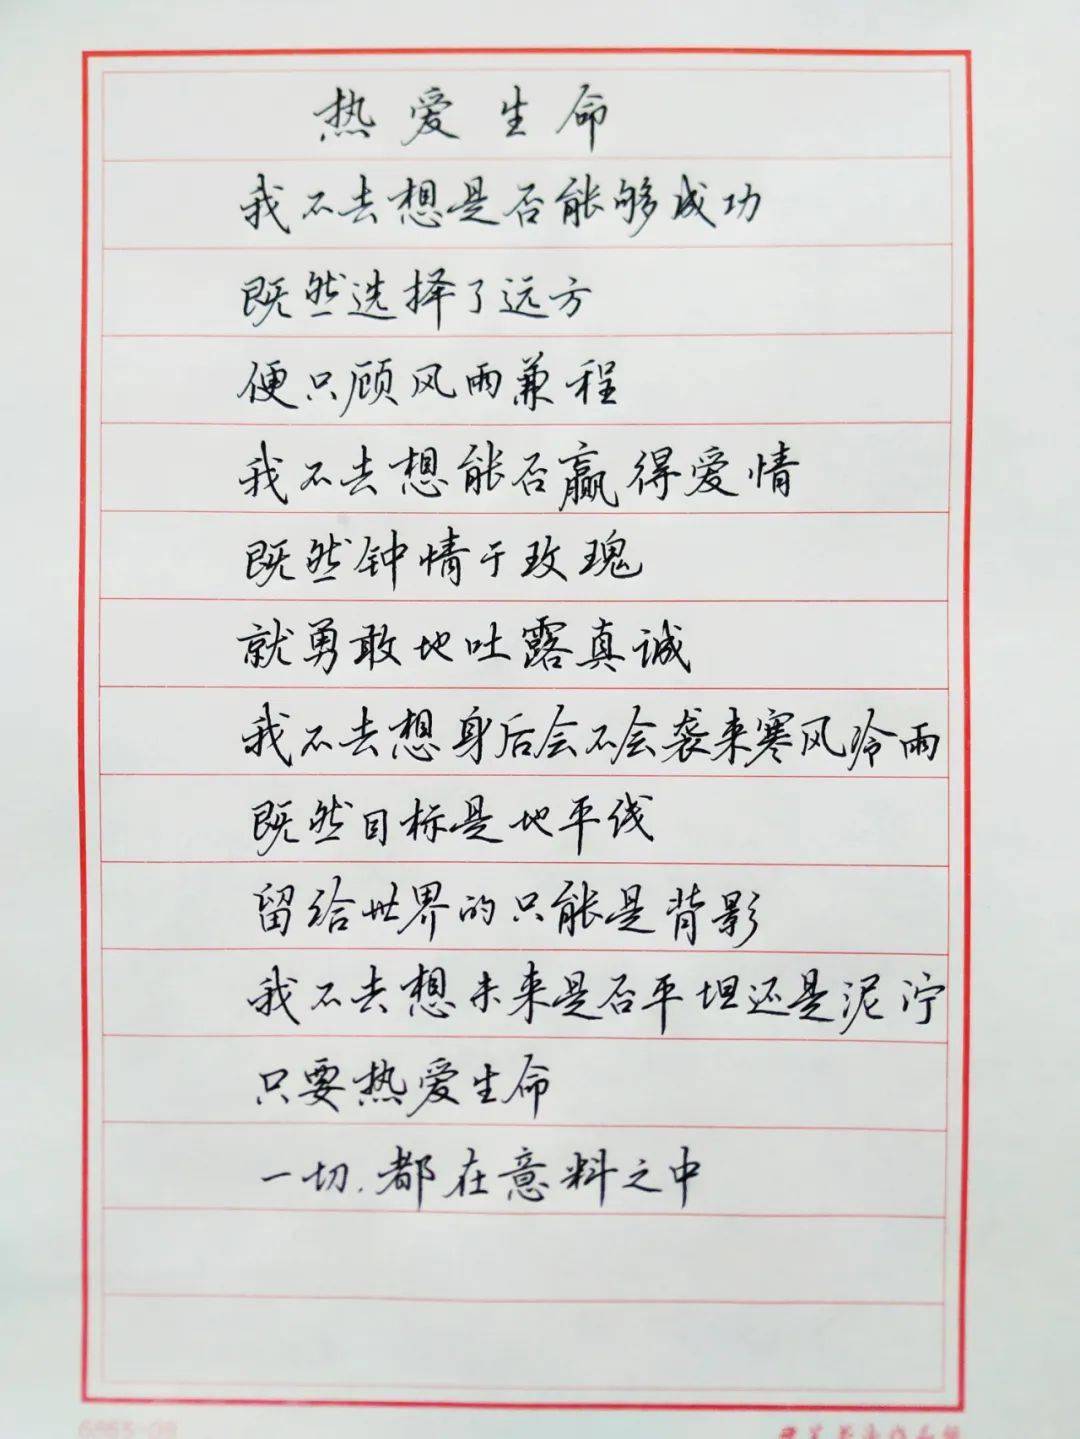 热爱生命
我不去想是否能够成功
既然选择了远方
便只顾风雨兼程
我不去想能否赢得爱情
既然钟情于玫瑰
就勇敢地吐露真诚
我不去想身后会不会袭来寒风冷雨
既然目标是地平线
留给世界的只能是背影
我不去想未来是否平坦还是泥泞
只要热爱生命
一切.都在意料之中
6863-08